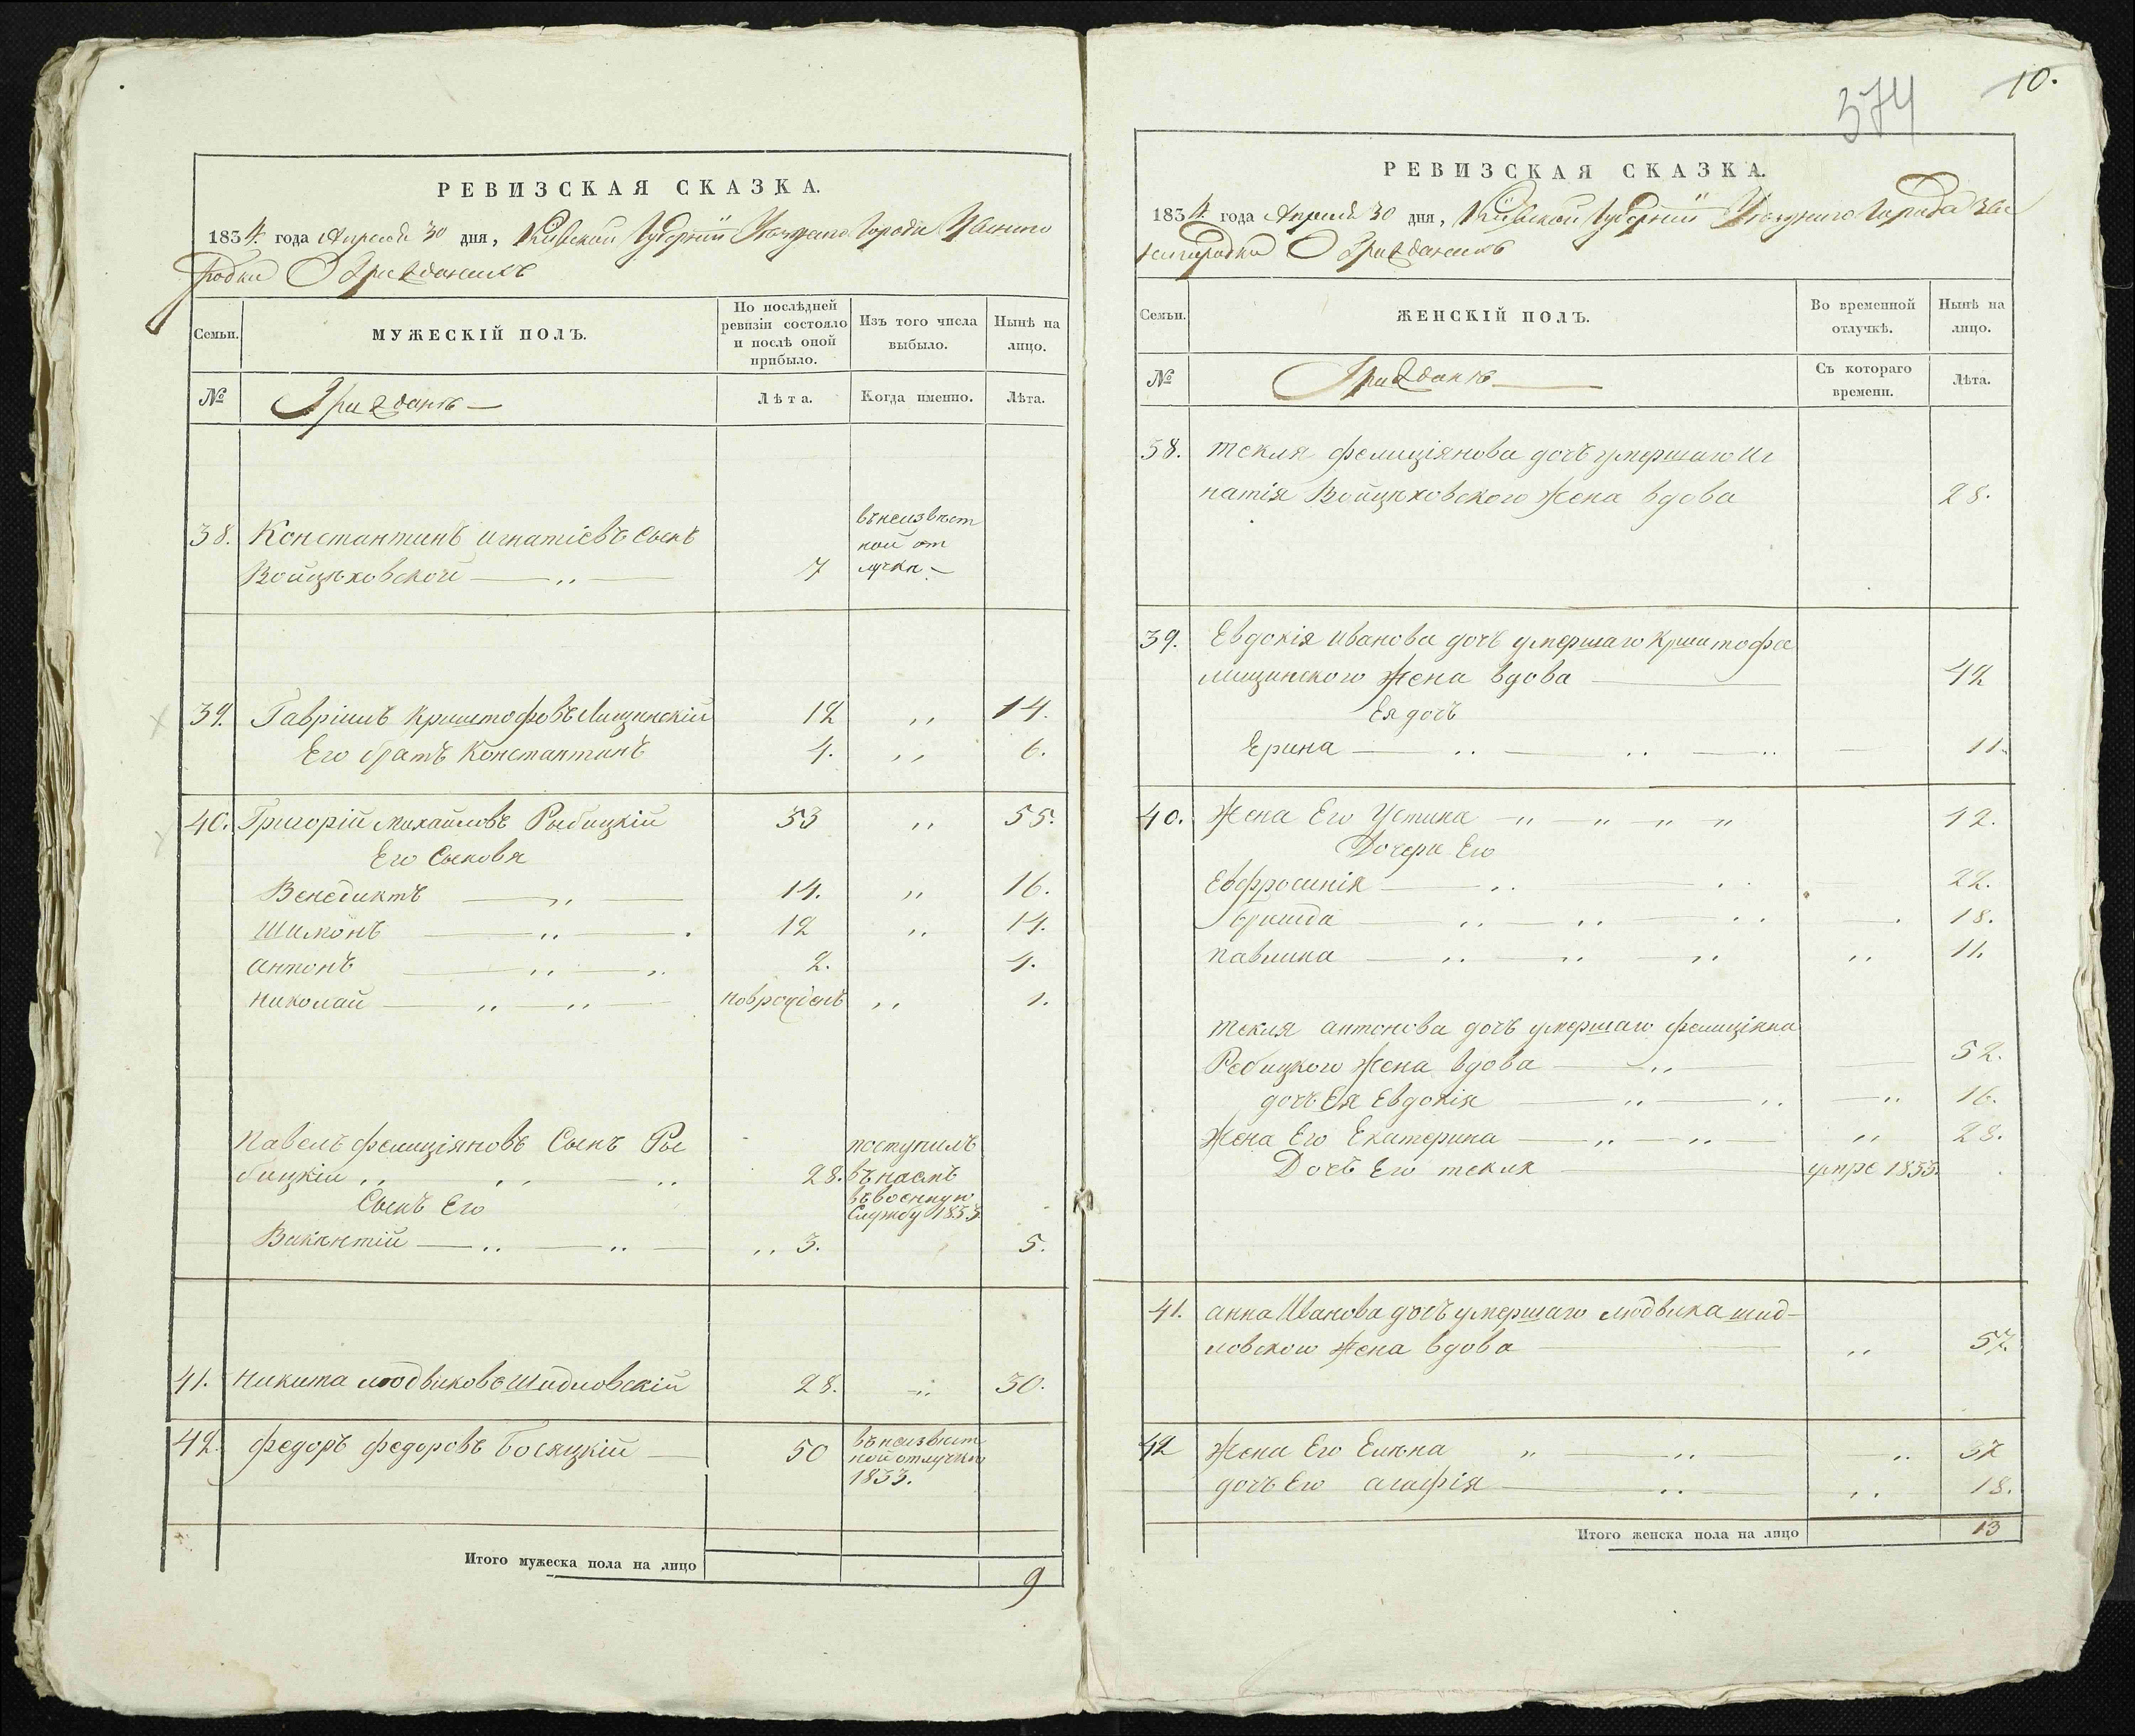 РЕВИЗСКАЯ СКАЗКА.
1834. года Апреля 30 дня, Кіевской Губерніи Уезднаго Города Звениго
родки О Гражданахъ
Семьи.
МУЖЕСКІЙ ПОЛЪ.
По послѣдней ревизіи состояло и послѣ оной прибыло.
Изъ того числа выбыло.
Нынѣ на лицо.
№
Гражданъ
Лѣта.
Когда именно.
Лѣта.
въ неизвѣст
38. Константинъ Игнатіевъ Сынъ
ной от
Войцѣховской 7 лучкѣ
39. Гавріилъ Криштофовъ Лищинскій 12 14.
Его братъ Константинъ 4. 6.
40. Григорій Михайловъ Рыбицкій 53 55.
Его Сыновя
Венедиктъ 14. 16.
Шимонъ 12 14.
Антонъ 2. 4.
Николай новрожденъ 1.
Павелъ Фелиціяновъ Сынъ Ры поступилъ
бицкій 28. въ наемъ
въ военную
Сынъ Его Службу 1833
Викентій 3. 5.
41. Никита Людвиковъ Шидловскій 28. 30.
42. Федоръ Федоровъ Босяцкій 50 въ неизвѣст
ной отлучкѣ
1833.
Итого мужеска пола на лицо 9
374
10.
РЕВИЗСКАЯ СКАЗКА.
1834 года Апреля 30 дня, Кіевской Губерніи Уезднаго Города Зве
нигородки О Гражданахъ
Семьи.
ЖЕНСКІЙ ПОЛЪ.
Во временной отлучкѣ.
Нынѣ на лицо.
№
Гражданъ
Съ котораго времени.
Лѣта.
38. Текля Фелиціянова дочъ умершаго Иг
натія Войцѣховского Жена вдова 28.
39. Евдокія Иванова дочъ умершаго Криштофа
Лищинского Жена вдова 42
Ея дочъ
Ерина 11
40. Жена Его Устина 42.
Дочери Его
Евфросинія 22.
Бригида 18.
Павлина 11.
Текля Антонова дочъ умершаго Фелиціяна
Рибицкого Жена вдова 52.
дочъ Ея Евдокія 16.
Жена Его Екатерина 28.
Дочъ Его Текля умре 1833.
41. Анна Иванова дочъ умершаго Людвика Шид-
ловского Жена вдова 57.
42 Жена Его Елѣна 37
дочъ Его Агафія 18.
Итого женска пола на лицо 13